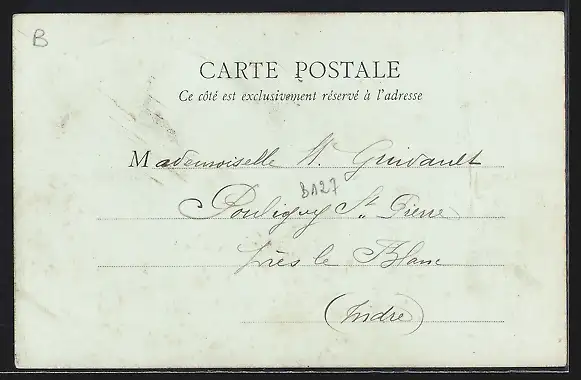 B
CARTE POSTALE
Ce côté est exclusivement réservé à l'adresse
Mademoiselle
B127
Pouligny St. Pierre
près le Blanc
(Indre)